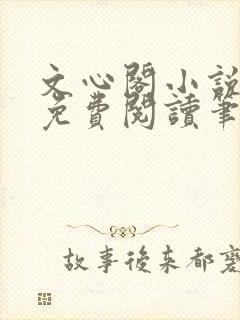 文心閣小說
免費閱讀筆
故事後来都